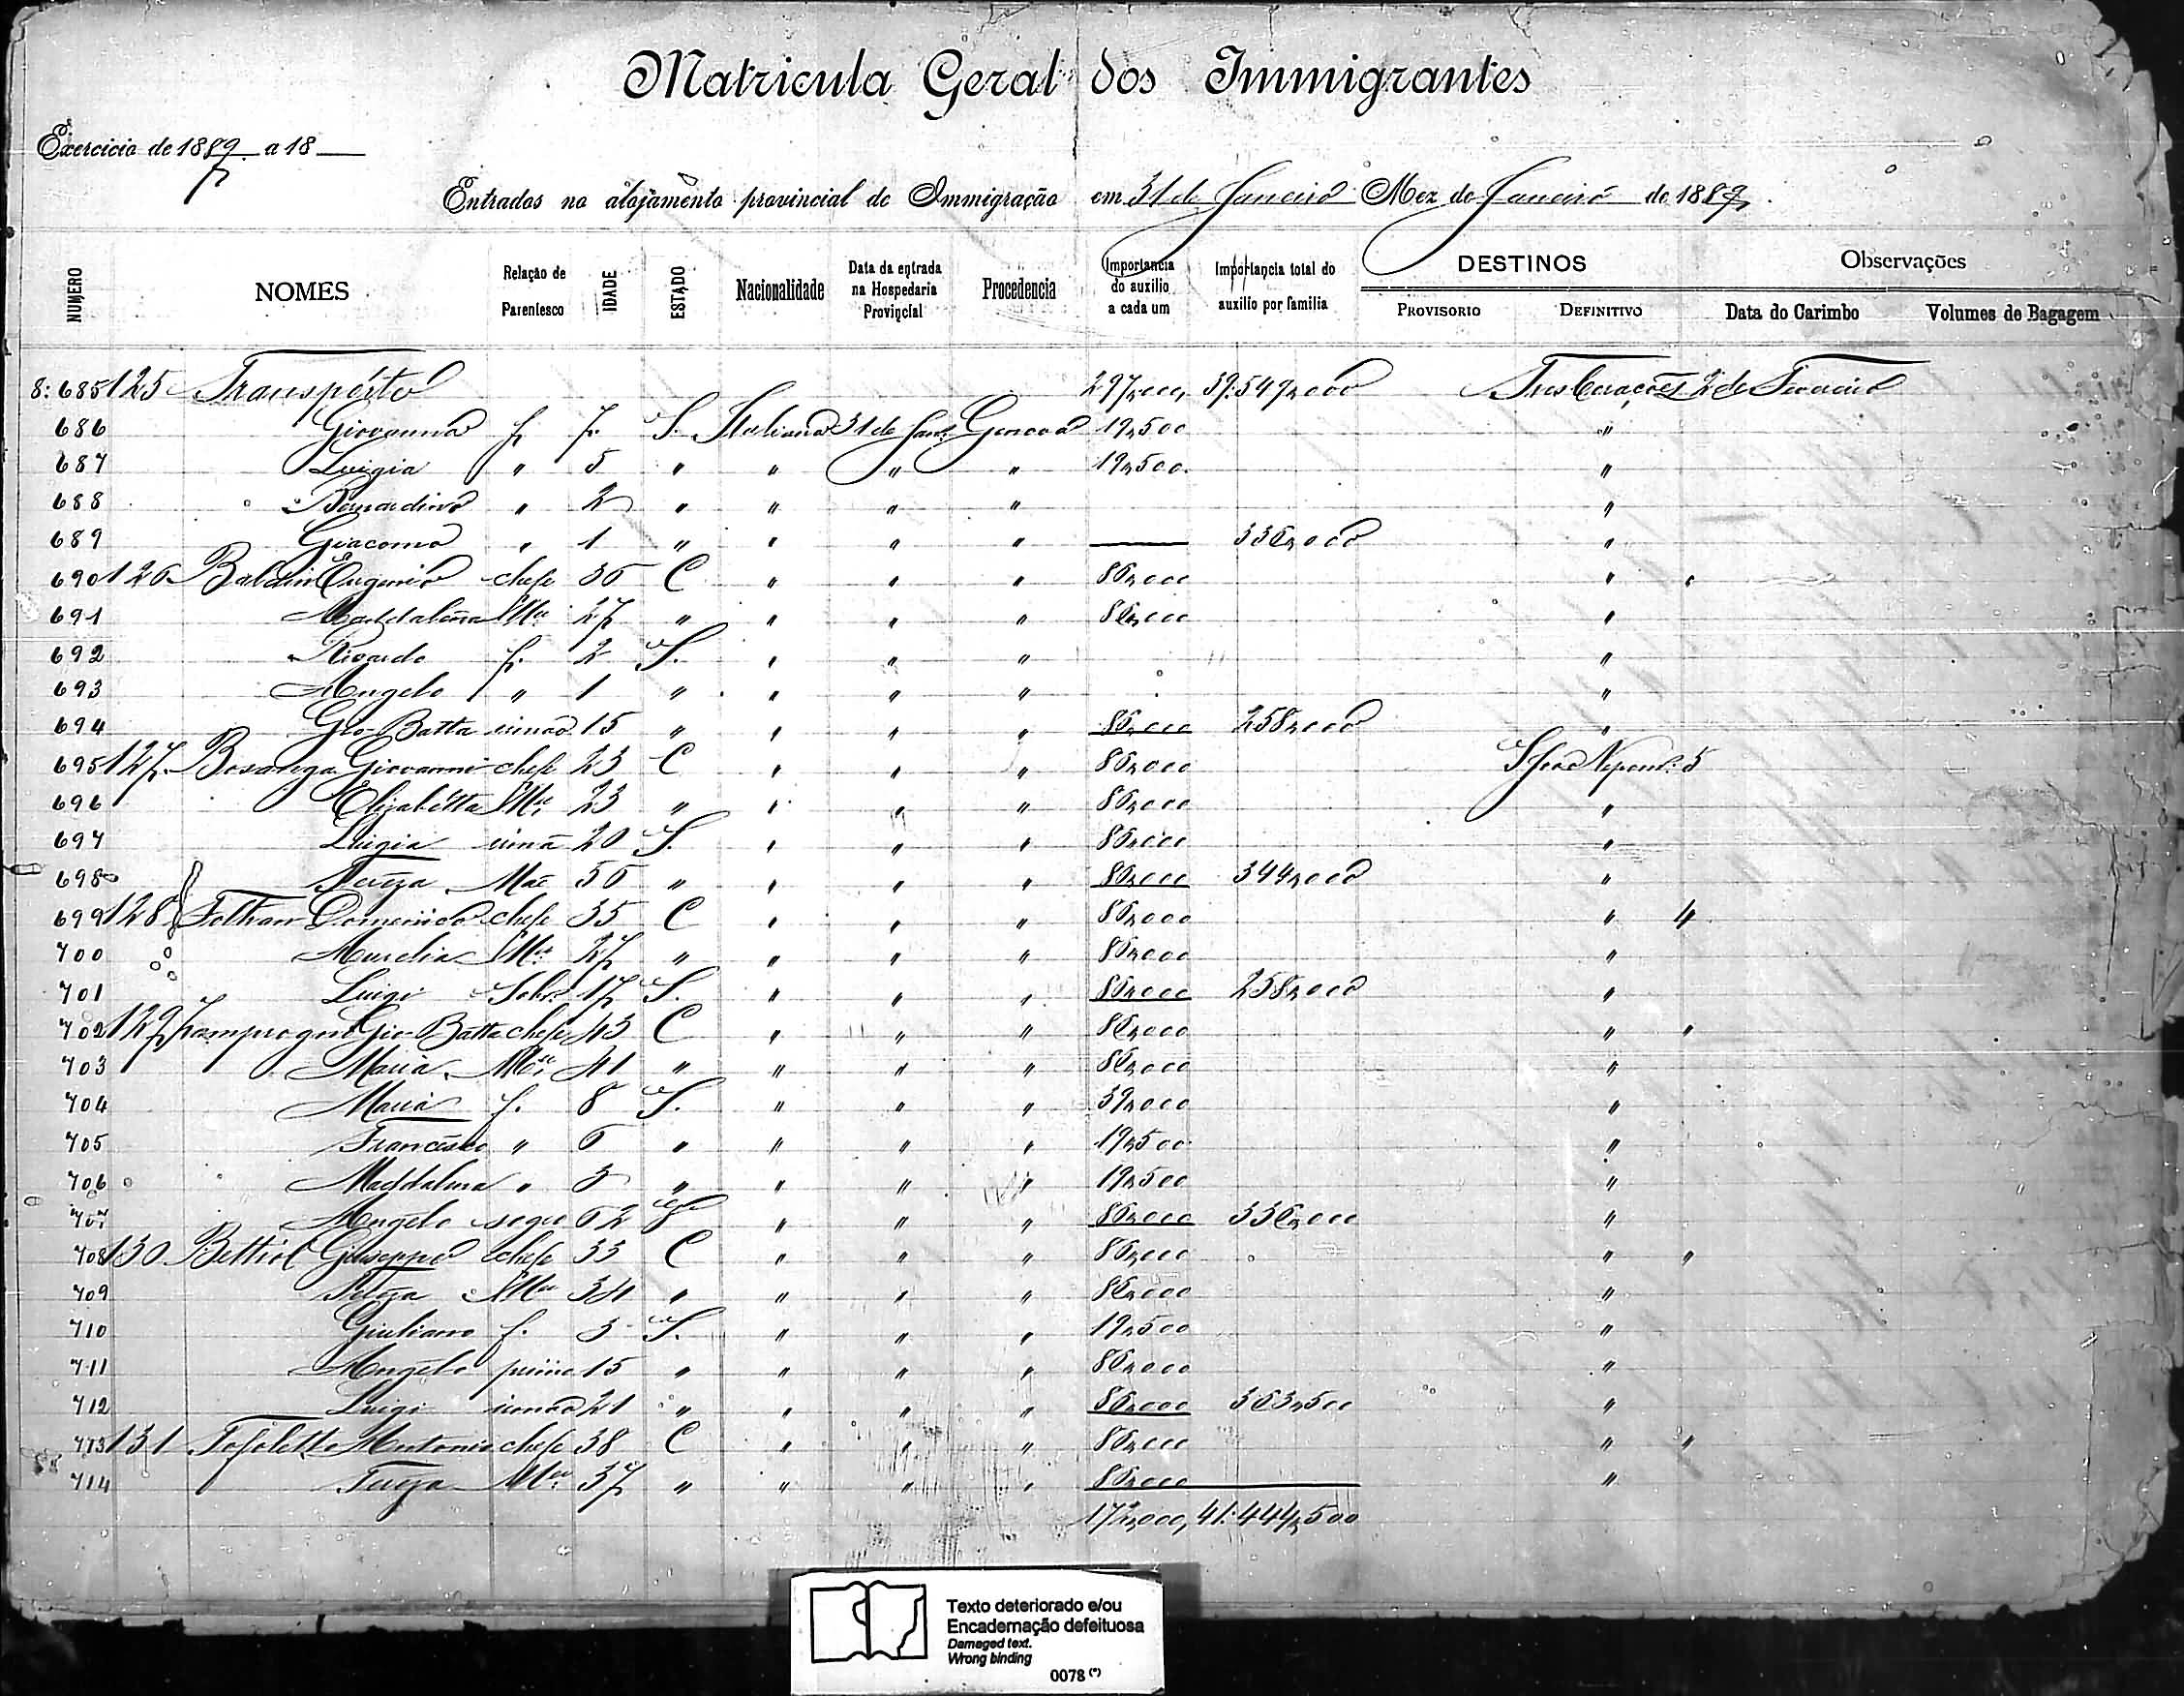 Matricula Geral dos Immigrantes
Exercicio de 1889 a 18
Entrados no alojamento provincial de Immigração em 31 de Janeiro Mez de Janeiro de 1889
NUMERO NOMES Relação de Parentesco IDADE ESTADO Nacionalidade Data da entrada na Hospedaria Provincial Procedencia Importancia do auxilio a cada um Importancia total do auxilio por familia DESTINOS PROVISORIO DEFINITIVO Observações Data do Carimbo Volumes de Bagagem
8:685 125 Transporto 297,000, 39:549,000 Tres Corações 2 de Fevereiro
686 Giovanna f. 7 S. Italiana 31 de Jan. Genova 19,500 "
687 Luigia " 5 " " " " 19,500 "
688 Bernardino " 2 " " " " "
689 Giacomo " 1 " " " " 336,000 "
690 126 Baldin Eugenio chefe 36 C " " " 86,000 " "
691 Maddalena Mer 27 " " " " 86,000 "
692 Ricardo f. 2 S. " " " "
693 Angelo " 1 " " " " "
694 Gio Batta irmão 15 " " " " 86,000 258,000 "
695 127 Giovanni chefe 23 C " " " 86,000 S João Nepom. 5
696 Elizabetta Mer 23 " " " " 86,000 "
697 Luigia irmã 20 S. " " " 86,000 "
698 Tereza Mãe 56 " " " " 86,000 344,000 "
699 128 Feltran Domenico chefe 35 C " " " 86,000 " 4
700 Aurelia Mer 27 " " " " 86,000 "
701 Luigi Sobr. 17 S. " " " 86,000 258,000 "
702 129 Zamprogno Gio Batta chefe 43 C " " " 86,000 " "
703 Maria Mer 41 " " " " 86,000 "
704 Maria f. 8 S. " " " 39,000 "
705 Francesco " 6 " " " " 19,500 "
706 Maddalena " 3 " " " " 19,500 "
707 Angelo sogro 62 " " " 86,000 336,000 "
708 130 Bettiol Giuseppe chefe 33 C " " " 86,000 " "
709 Tereza Mer 34 " " " " 86,000 "
710 Giuliano f. 3 S. " " " 19,500 "
711 Angelo primo 15 " " " " 86,000 "
712 Luigi irmão 21 " " " " 86,000 363,500 "
713 131 Tofoletto Antonio chefe 38 C " " " 86,000 " "
714 Tereza Mer 37 " " " " 86,000 "
172,000, 41:444,500
Texto deteriorado e/ou
Encadernação defeituosa
Damaged text.
Wrong binding
0078 (*)